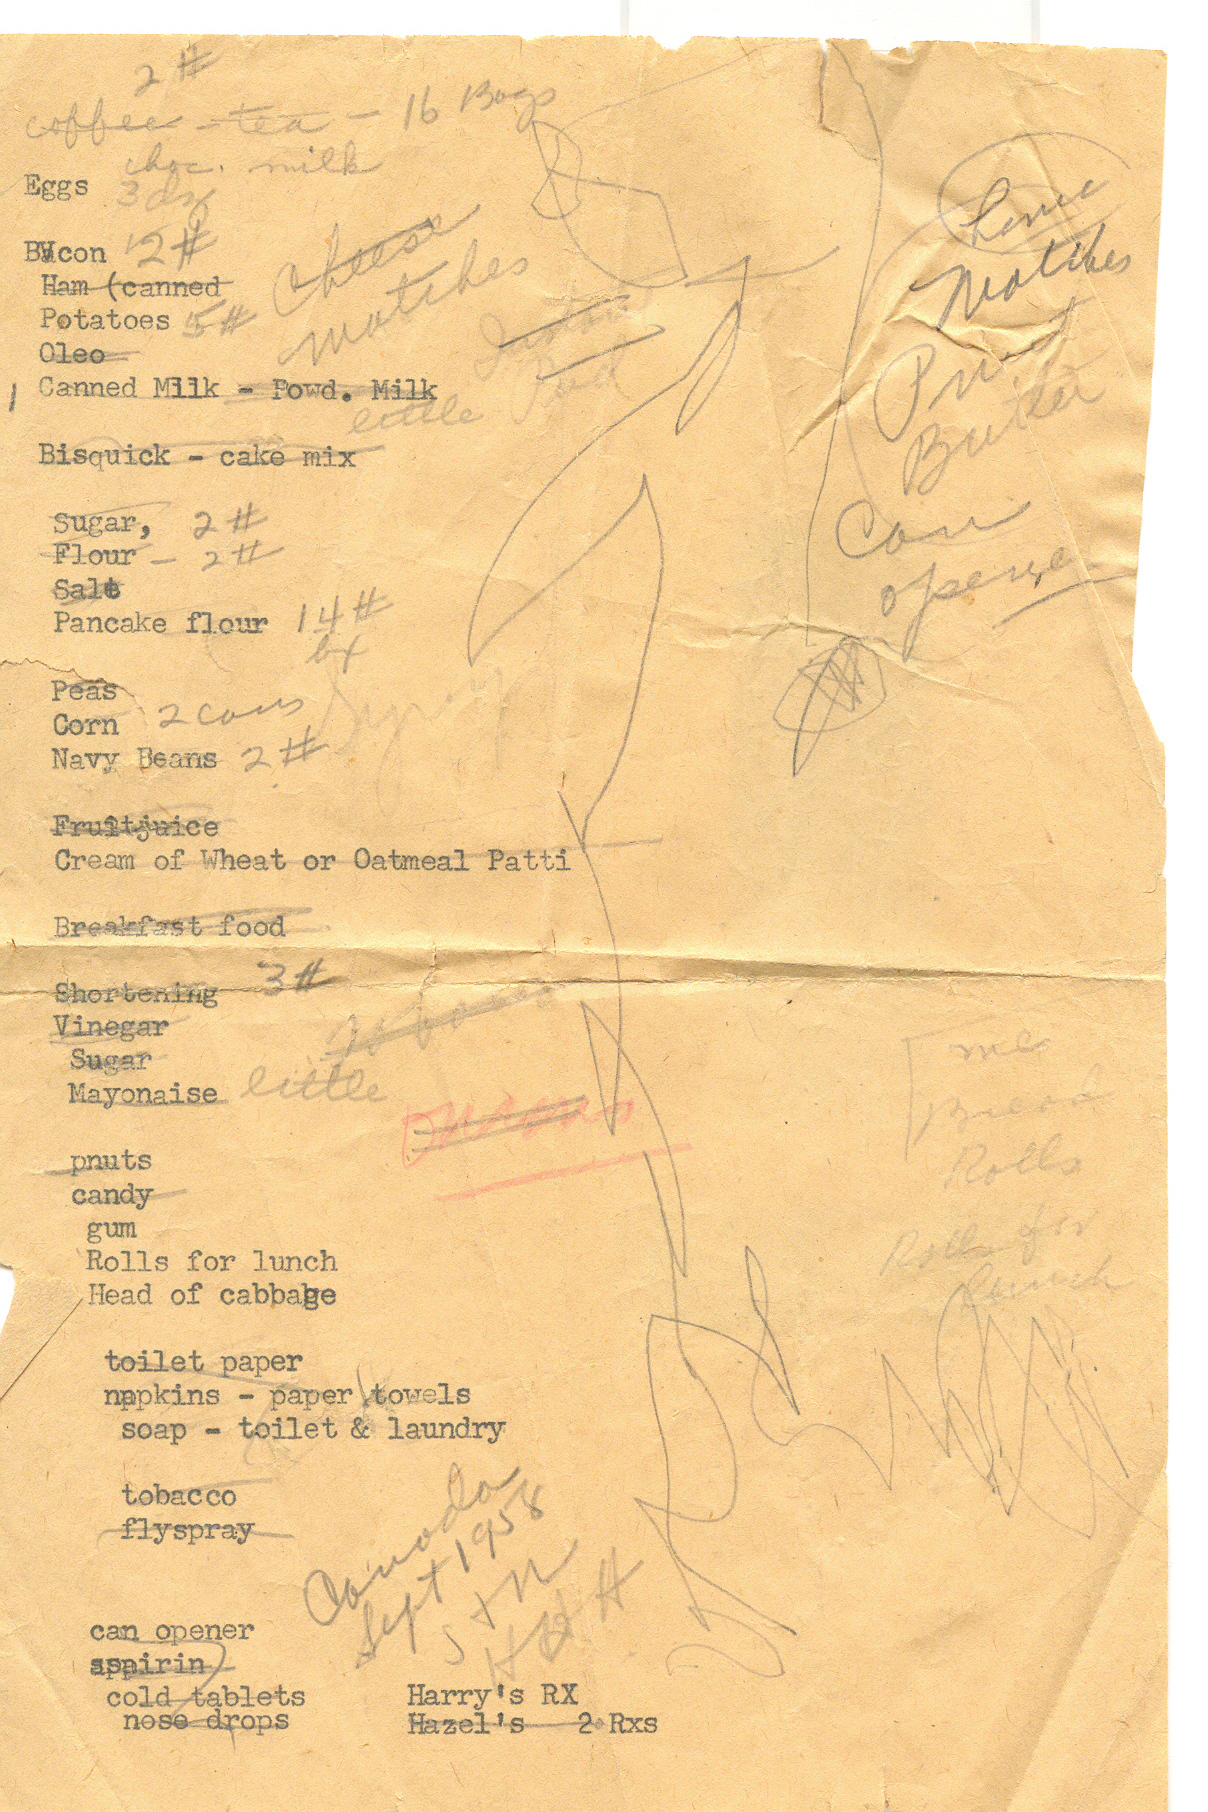 2 #
coffee - tea - 16 Bags
choc. milk
Eggs 3 dz
Bacon 2 #
Ham (canned
Potatoes 5 #
Oleo
Canned Milk - Powd. Milk
little
cheese
matches
Bisquick - cake mix
Sugar, 2 #
Flour - 2 #
Salt
Pancake flour 1 4 #
bx
Peas
Corn 2 cans
Navy Beans 2 #
Fruitjuice
Cream of Wheat or Oatmeal Patti
Breakfast food
Shortening 3 #
Vinegar
Sugar
Mayonaise little
Onions
pnuts
candy
gum
Rolls for lunch
Head of cabbage
toilet paper
napkins - paper towels
soap - toilet & laundry
tobacco
flyspray
can opener
aspirin
cold tablets
nose drops
Harry's RX
Hazel's 2 Rxs
Canada
Sept 1958
S + N
H & H
matches
Pnut
Butter
Can
opener
me
Bread
Rolls
Rolls for
lunch